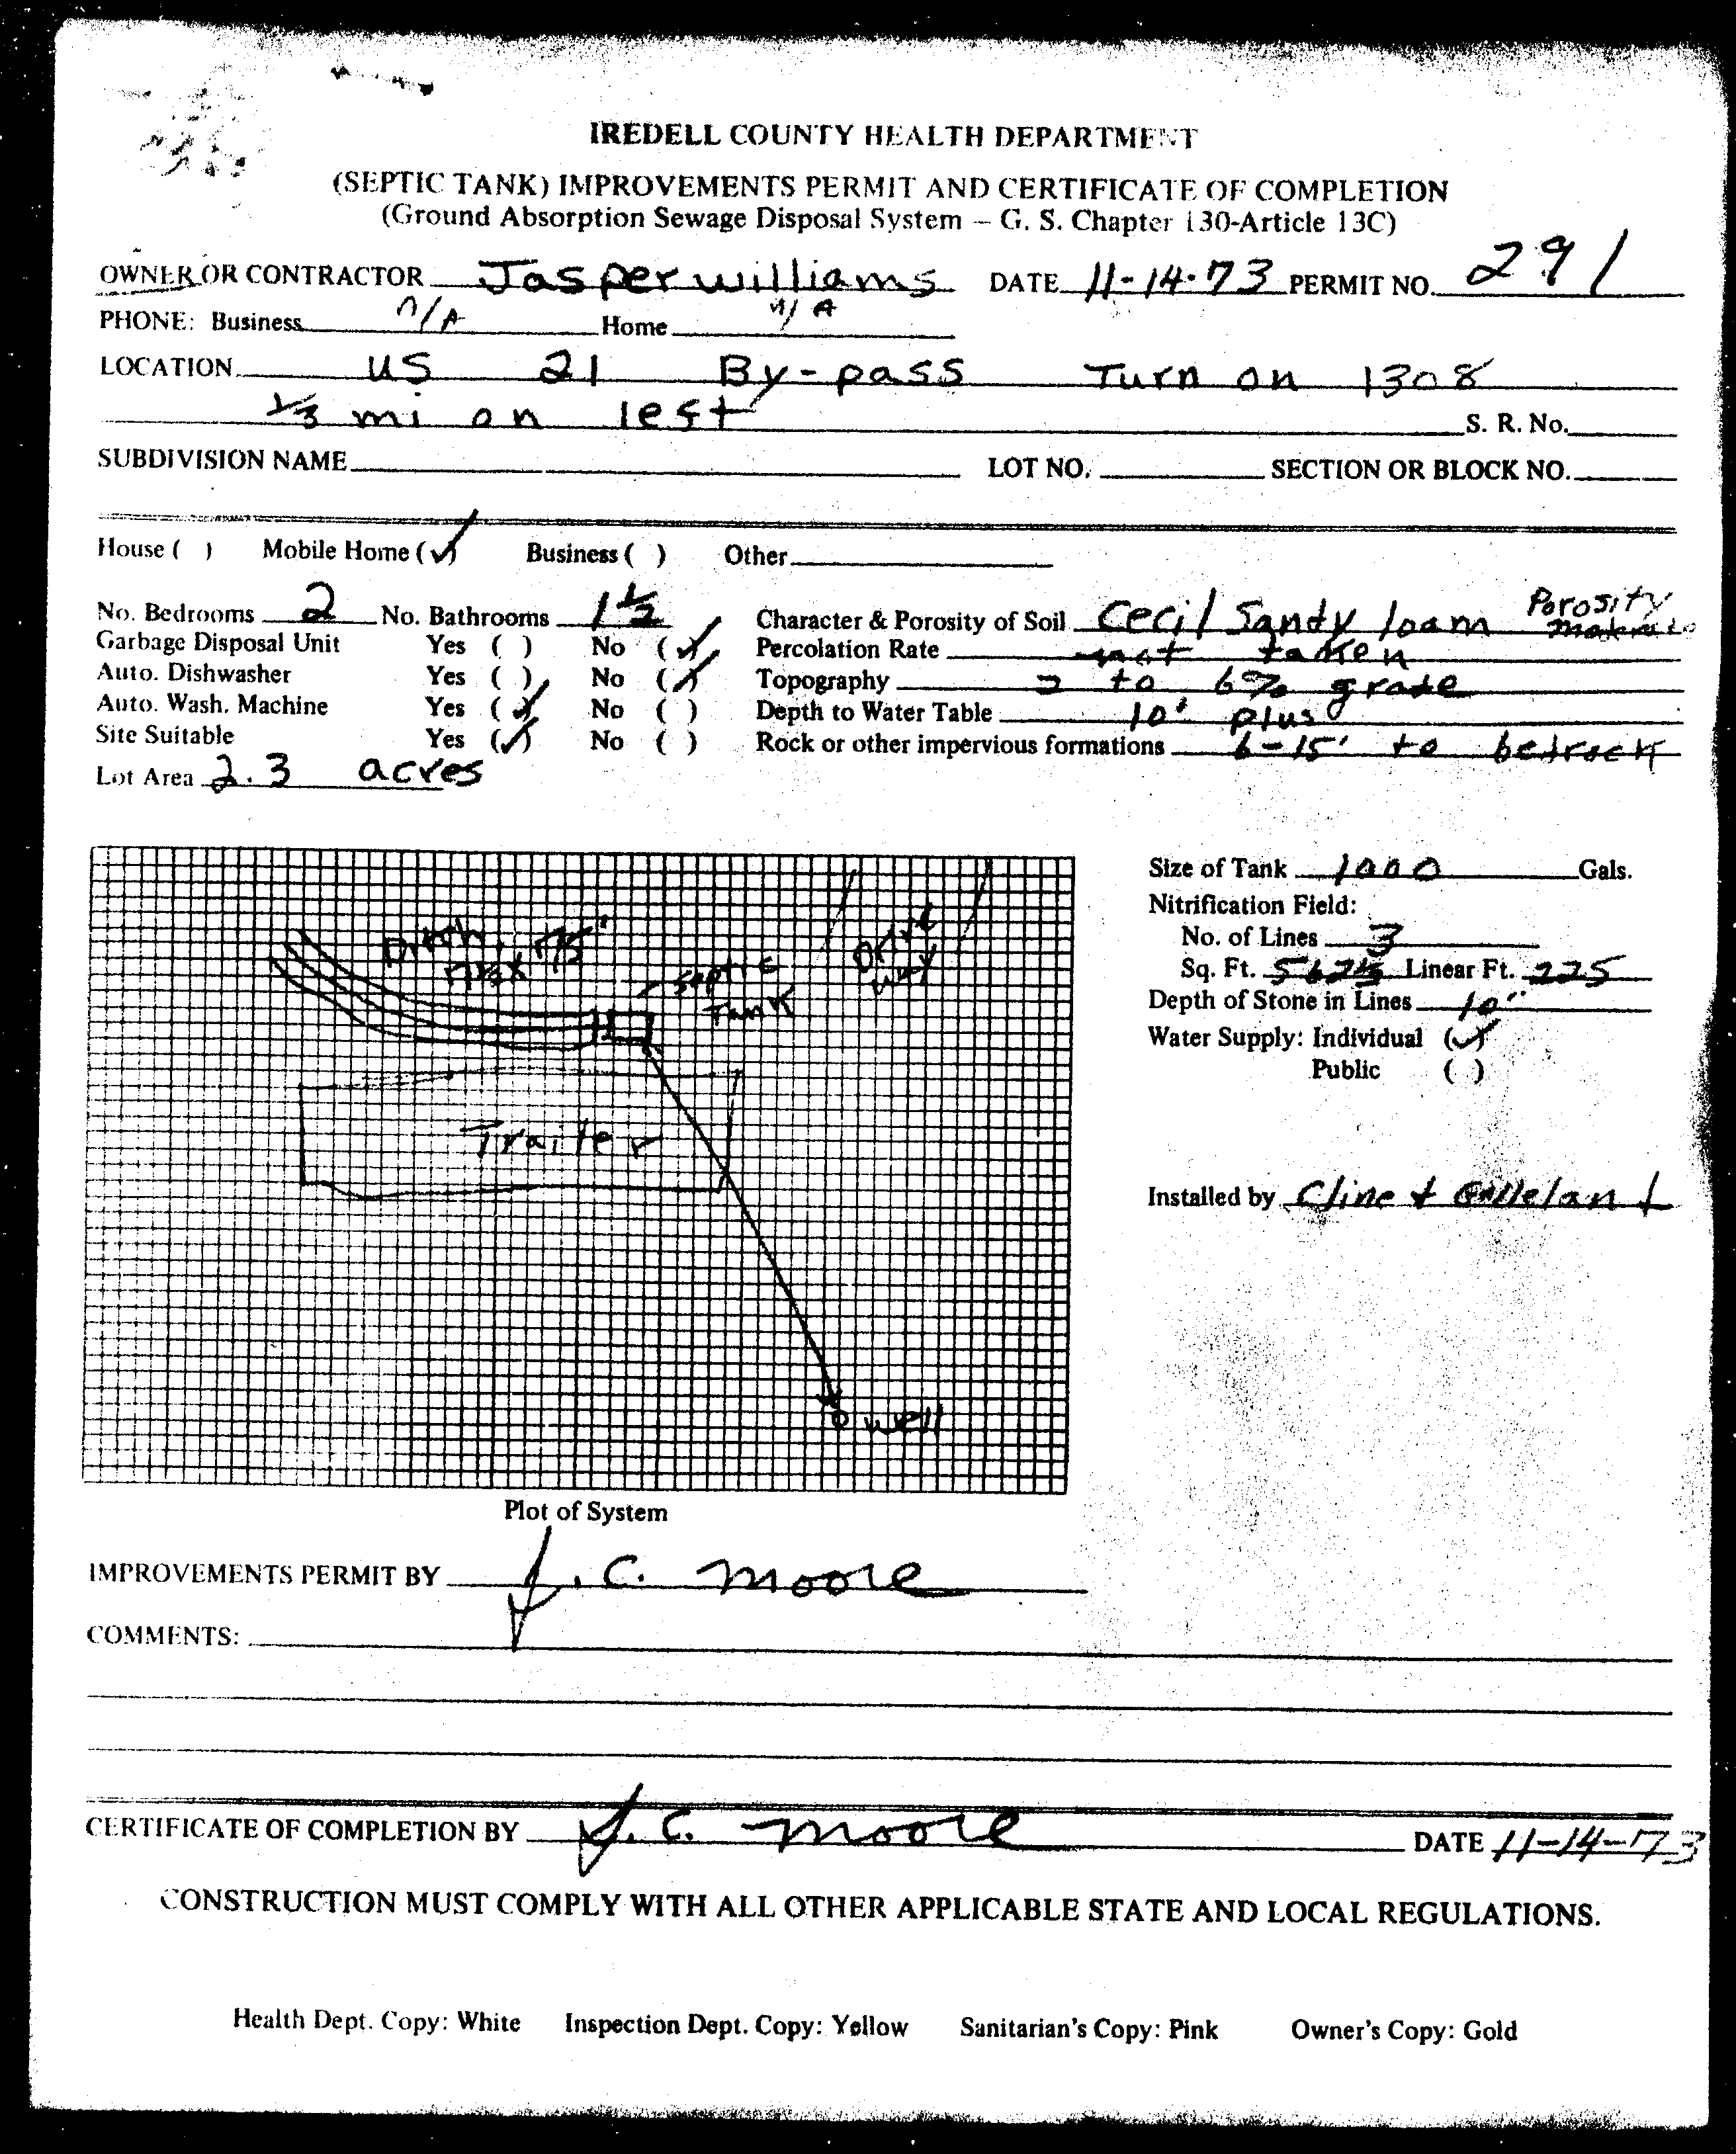 IREDELL COUNTY HEALTH DEPARTMENT
(SEPTIC TANK) IMPROVEMENTS PERMIT AND CERTIFICATE OF COMPLETION
(Ground Absorption Sewage Disposal System – G. S. Chapter 130-Article 13C)
OWNER OR CONTRACTOR Jasper williams DATE 11-14-73 PERMIT NO. 291
PHONE: Business n/A Home n/A
LOCATION US 21 By-pass Turn on 1308
1/3 mi on left S. R. No.
SUBDIVISION NAME LOT NO. SECTION OR BLOCK NO.
House ( ) Mobile Home (✓) Business ( ) Other
No. Bedrooms 2 No. Bathrooms 1 1/2 Character & Porosity of Soil Cecil Sandy loam Porosity
Garbage Disposal Unit Yes ( ) No (✓) Percolation Rate not taken
Auto. Dishwasher Yes ( ) No (✓) Topography to 6% grade
Auto. Wash. Machine Yes (✓) No ( ) Depth to Water Table 10' plus
Site Suitable Yes (✓) No ( ) Rock or other impervious formations 6-15' to bedrock
Lot Area 2.3 acres
Size of Tank 1000 Gals.
Nitrification Field:
No. of Lines 3
Sq. Ft. Linear Ft. 225
Depth of Stone in Lines 10"
Water Supply: Individual (✓)
Public ( )
Installed by Cline &
Ditch
75'
Septic
Tank
Drive
way
Trailer
well
Plot of System
IMPROVEMENTS PERMIT BY J. C. Moore
COMMENTS:
CERTIFICATE OF COMPLETION BY J. C. Moore DATE 11-14-73
CONSTRUCTION MUST COMPLY WITH ALL OTHER APPLICABLE STATE AND LOCAL REGULATIONS.
Health Dept. Copy: White Inspection Dept. Copy: Yellow Sanitarian's Copy: Pink Owner's Copy: Gold